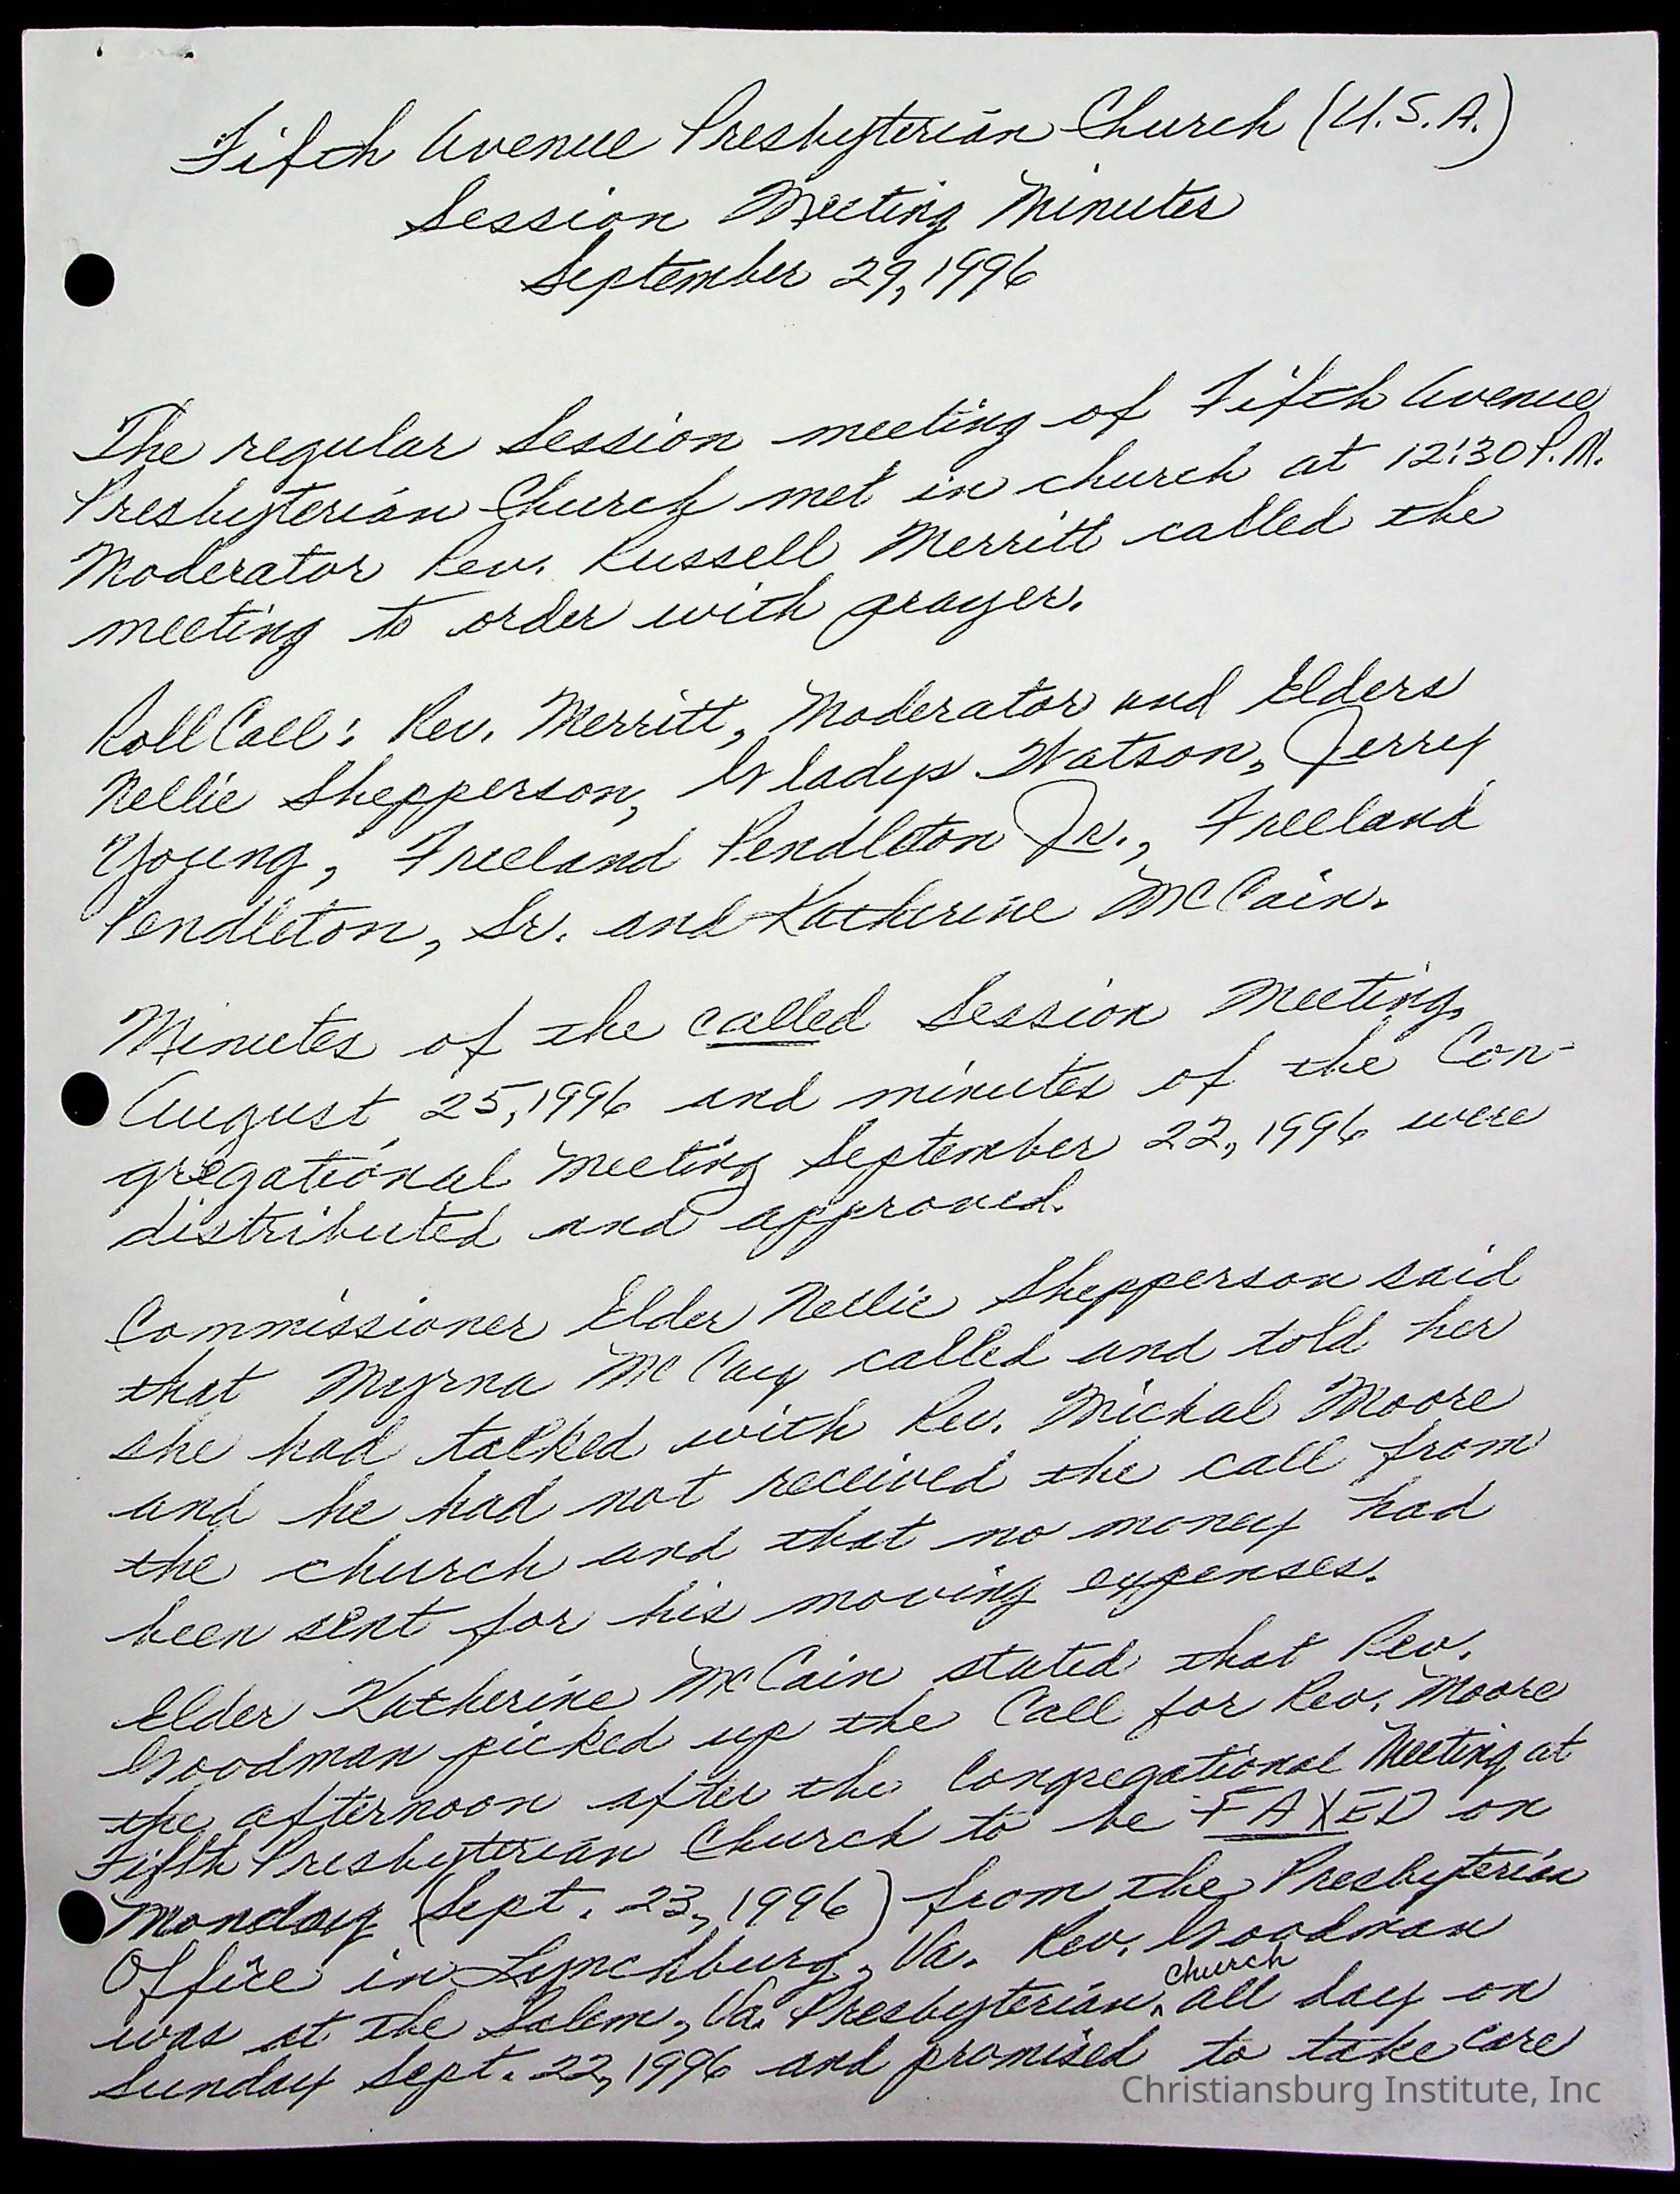 Fifth Avenue Presbyterian Church (U.S.A.)
Session Meeting Minutes
September 29, 1996
The regular Session meeting of Fifth Avenue
Presbyterian Church met in church at 12:30 P.M.
Moderator Rev. Russell Merritt called the
meeting to order with prayer.
Roll Call: Rev. Merritt, Moderator and Elders
Nellie Shepperson, Gladys Watson, Jerry
Young, Freeland Pendleton Jr., Freeland
Pendleton, Sr. and Katherine McCain.
Minutes of the called Session Meeting,
August 25, 1996 and minutes of the Con-
gregational Meeting September 22, 1996 were
distributed and approved.
Commissioner Elder Nellie Shepperson said
that Myrna McCay called and told her
she had talked with Rev. Michal Moore
and he had not received the call from
the church and that no money had
been sent for his moving expenses.
Elder Katherine McCain stated that Rev.
Goodman picked up the Call for Rev. Moore
the afternoon after the Congregational Meeting at
Fifth Presbyterian Church to be FAXED on
Monday (Sept. 23, 1996) from the Presbyterian
Office in Lynchburg, Va. Rev. Goodman
was at the Salem, Va. Presbyterian church all day on
Sunday Sept. 22, 1996 and promised to take care
Christiansburg Institute, Inc